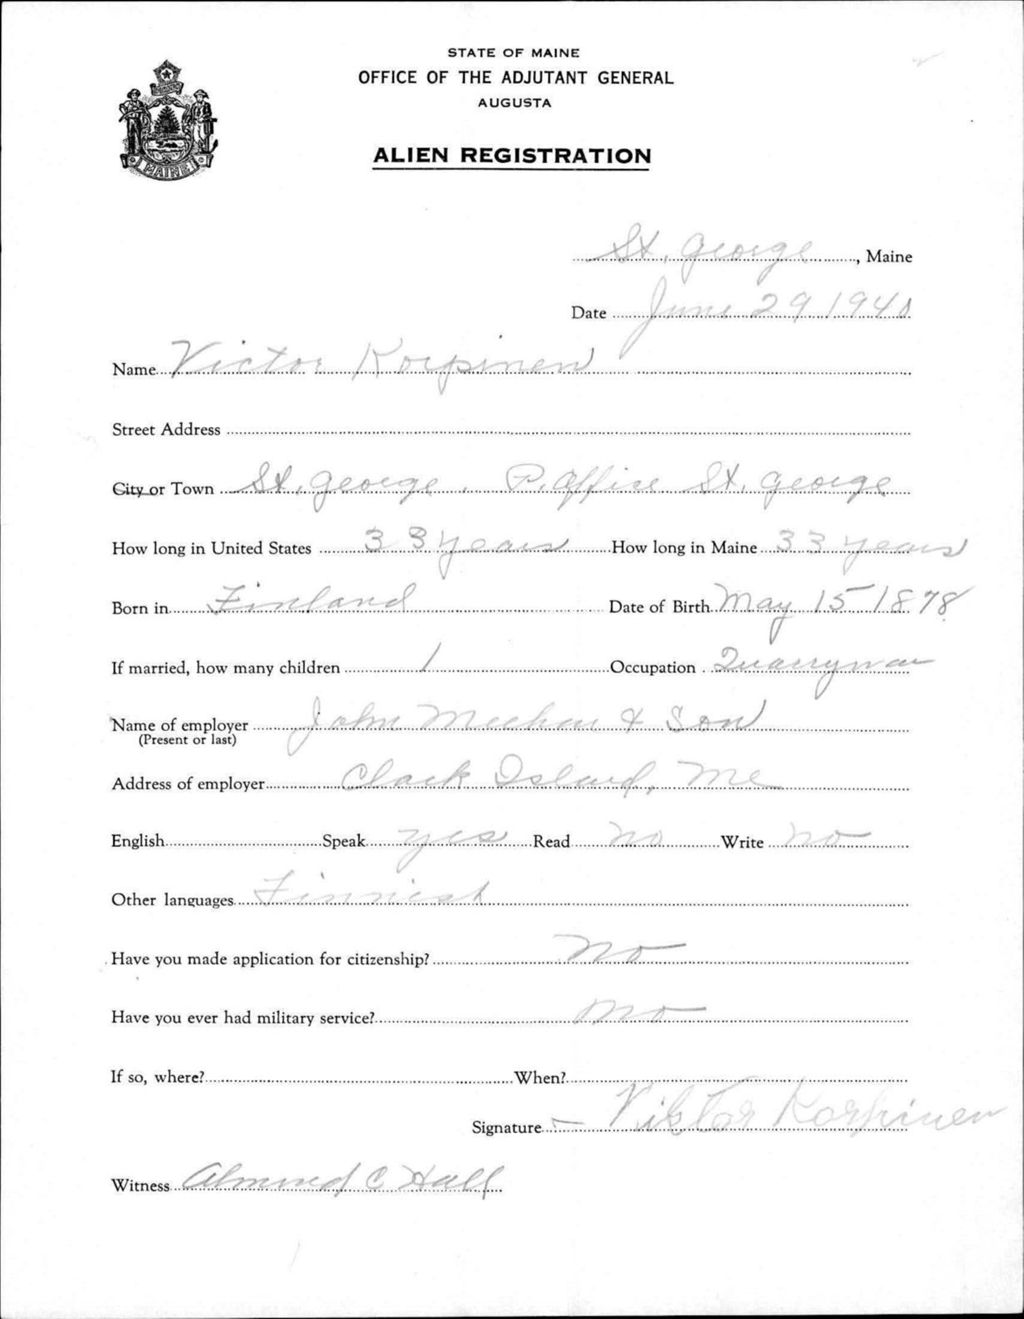 STATE OF MAINE
OFFICE OF THE ADJUTANT GENERAL
AUGUSTA
ALIEN REGISTRATION
MAINE
St. George, Maine
Date June 29 1940
Name Victor Korpinen
Street Address
City or Town St. George. P. Office St. George
How long in United States 33 years How long in Maine 33 years
Born in Finland Date of Birth May 15 1878
If married, how many children 1 Occupation Quarryman
Name of employer John Meehan & Son
(Present or last)
Address of employer Clark Island, Me
English Speak yes Read no Write no
Other languages Finnish
Have you made application for citizenship? no
Have you ever had military service? no
If so, where? When?
Signature Viktor Korpinen
Witness Almond C Hall